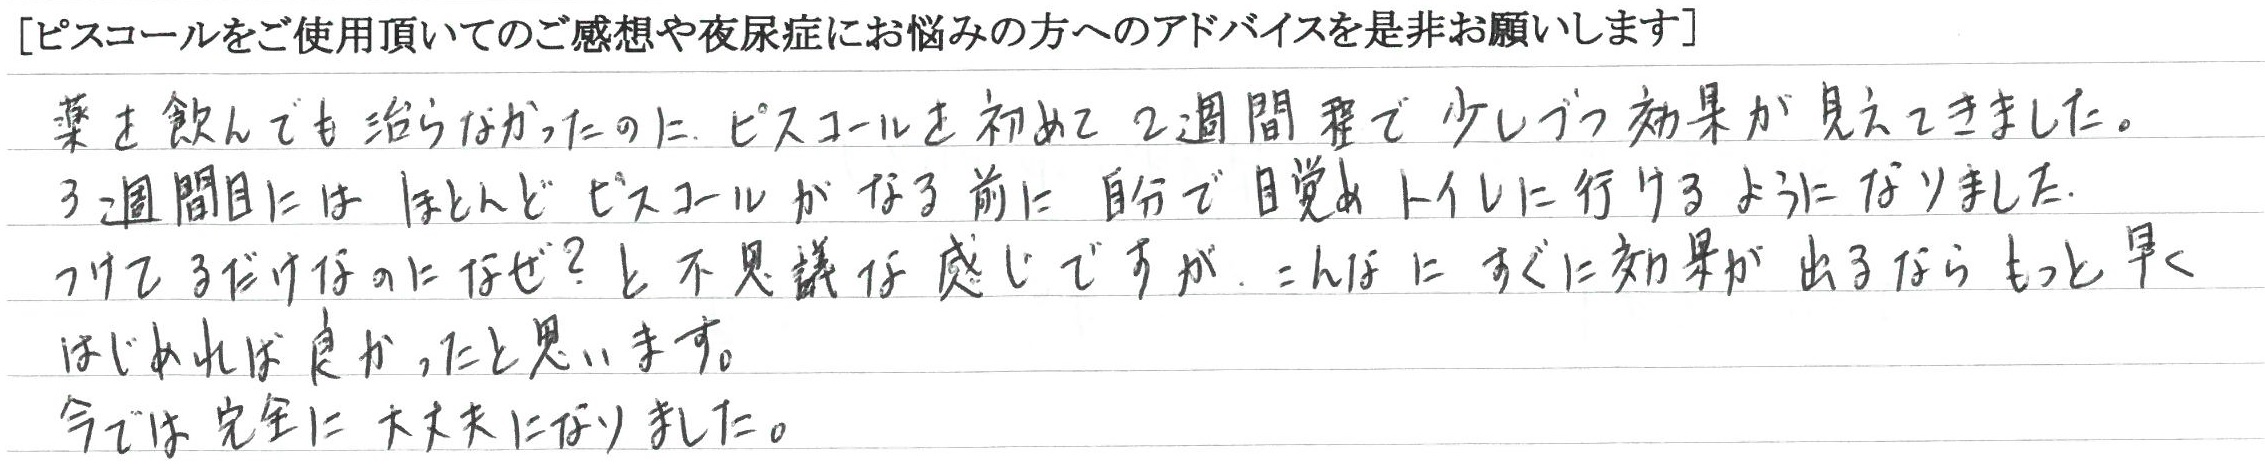 [ピスコールをご使用頂いてのご感想や夜尿症にお悩みの方へのアドバイスを是非お願いします]
薬を飲んでも治らなかったのに、ピスコールを初めて2週間程で少しづつ効果が見えてきました。
3週間目にはほとんどピスコールがなる前に自分で目覚めトイレに行けるようになりました.
つけてるだけなのになぜ?と不思議な感じですが、こんなにすぐに効果が出るならもっと早く
はじめれば良かったと思います。
今では完全に大丈夫になりました。